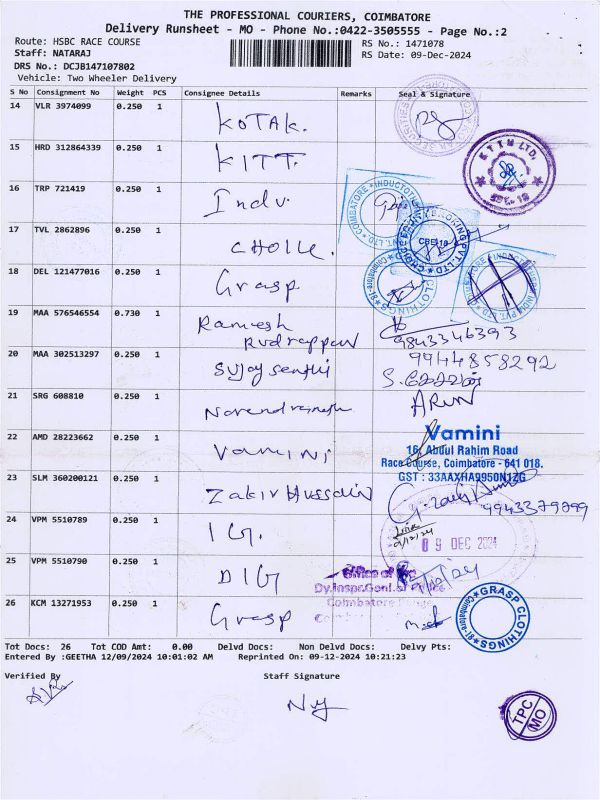 THE PROFESSIONAL COURIERS, COIMBATORE
Delivery Runsheet - MO - Phone No.:0422-3505555 - Page No.:2
Route: HSBC RACE COURSE RS No.: 1471078
Staff: NATARAJ RS Date: 09-Dec-2024
DRS No.: DCJB147107802
Vehicle: Two Wheeler Delivery
S No Consignment No Weight PCS Consignee Details Remarks Seal & Signature
14 VLR 3974099 0.250 1 KOTAK.
15 HRD 312864339 0.250 1 KITT. K T T M LTD.
16 TRP 721419 0.250 1 Indu.
17 TVL 2862896 0.250 1 CBE-18
18 DEL 121477016 0.250 1 Grasp
19 MAA 576546554 0.730 1 Ramesh Rudrappan 9843346393
20 MAA 302513297 0.250 1 Sujay Senthi 9944858292
21 SRG 608810 0.250 1 ARUN
22 AMD 28223662 0.250 1 Vamini
Vamini
16, Abdul Rahim Road
Race Course, Coimbatore - 641 018.
GST : 33AAXHA9950N1ZG
23 SLM 360200121 0.250 1 Zakir Hussain 9943379799
24 VPM 5510789 0.250 1 IG. 09 DEC 2024
25 VPM 5510790 0.250 1 DIG
Office of the
Dy.Inspr.Genl.of Police
Coimbatore Range
26 KCM 13271953 0.250 1 Grasp GRASP CLOTHINGS Coimbatore-18
Tot Docs: 26 Tot COD Amt: 0.00 Delvd Docs: Non Delvd Docs: Delvy Pts:
Entered By :GEETHA 12/09/2024 10:01:02 AM Reprinted On: 09-12-2024 10:21:23
Verified By Staff Signature
TPC MO